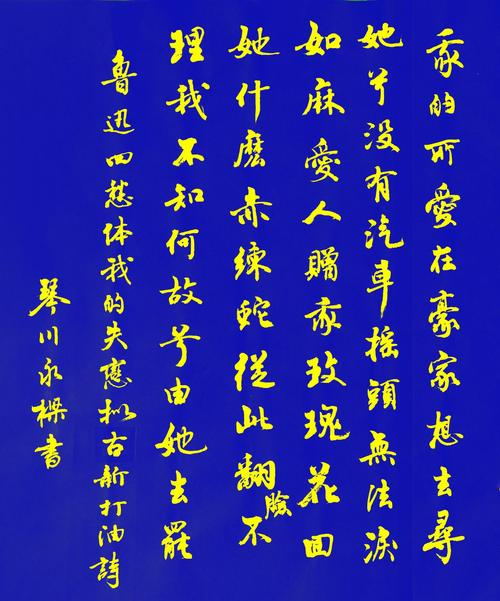 我的所愛在豪家想去尋
她兮没有汽車摇頭無法淚
如麻愛人贈我玫瑰花回
她什麽赤練蛇從此翻臉不
理我不知何故兮由她去罷
魯迅四愁体我的失戀拟古新打油詩
琴川永樑書